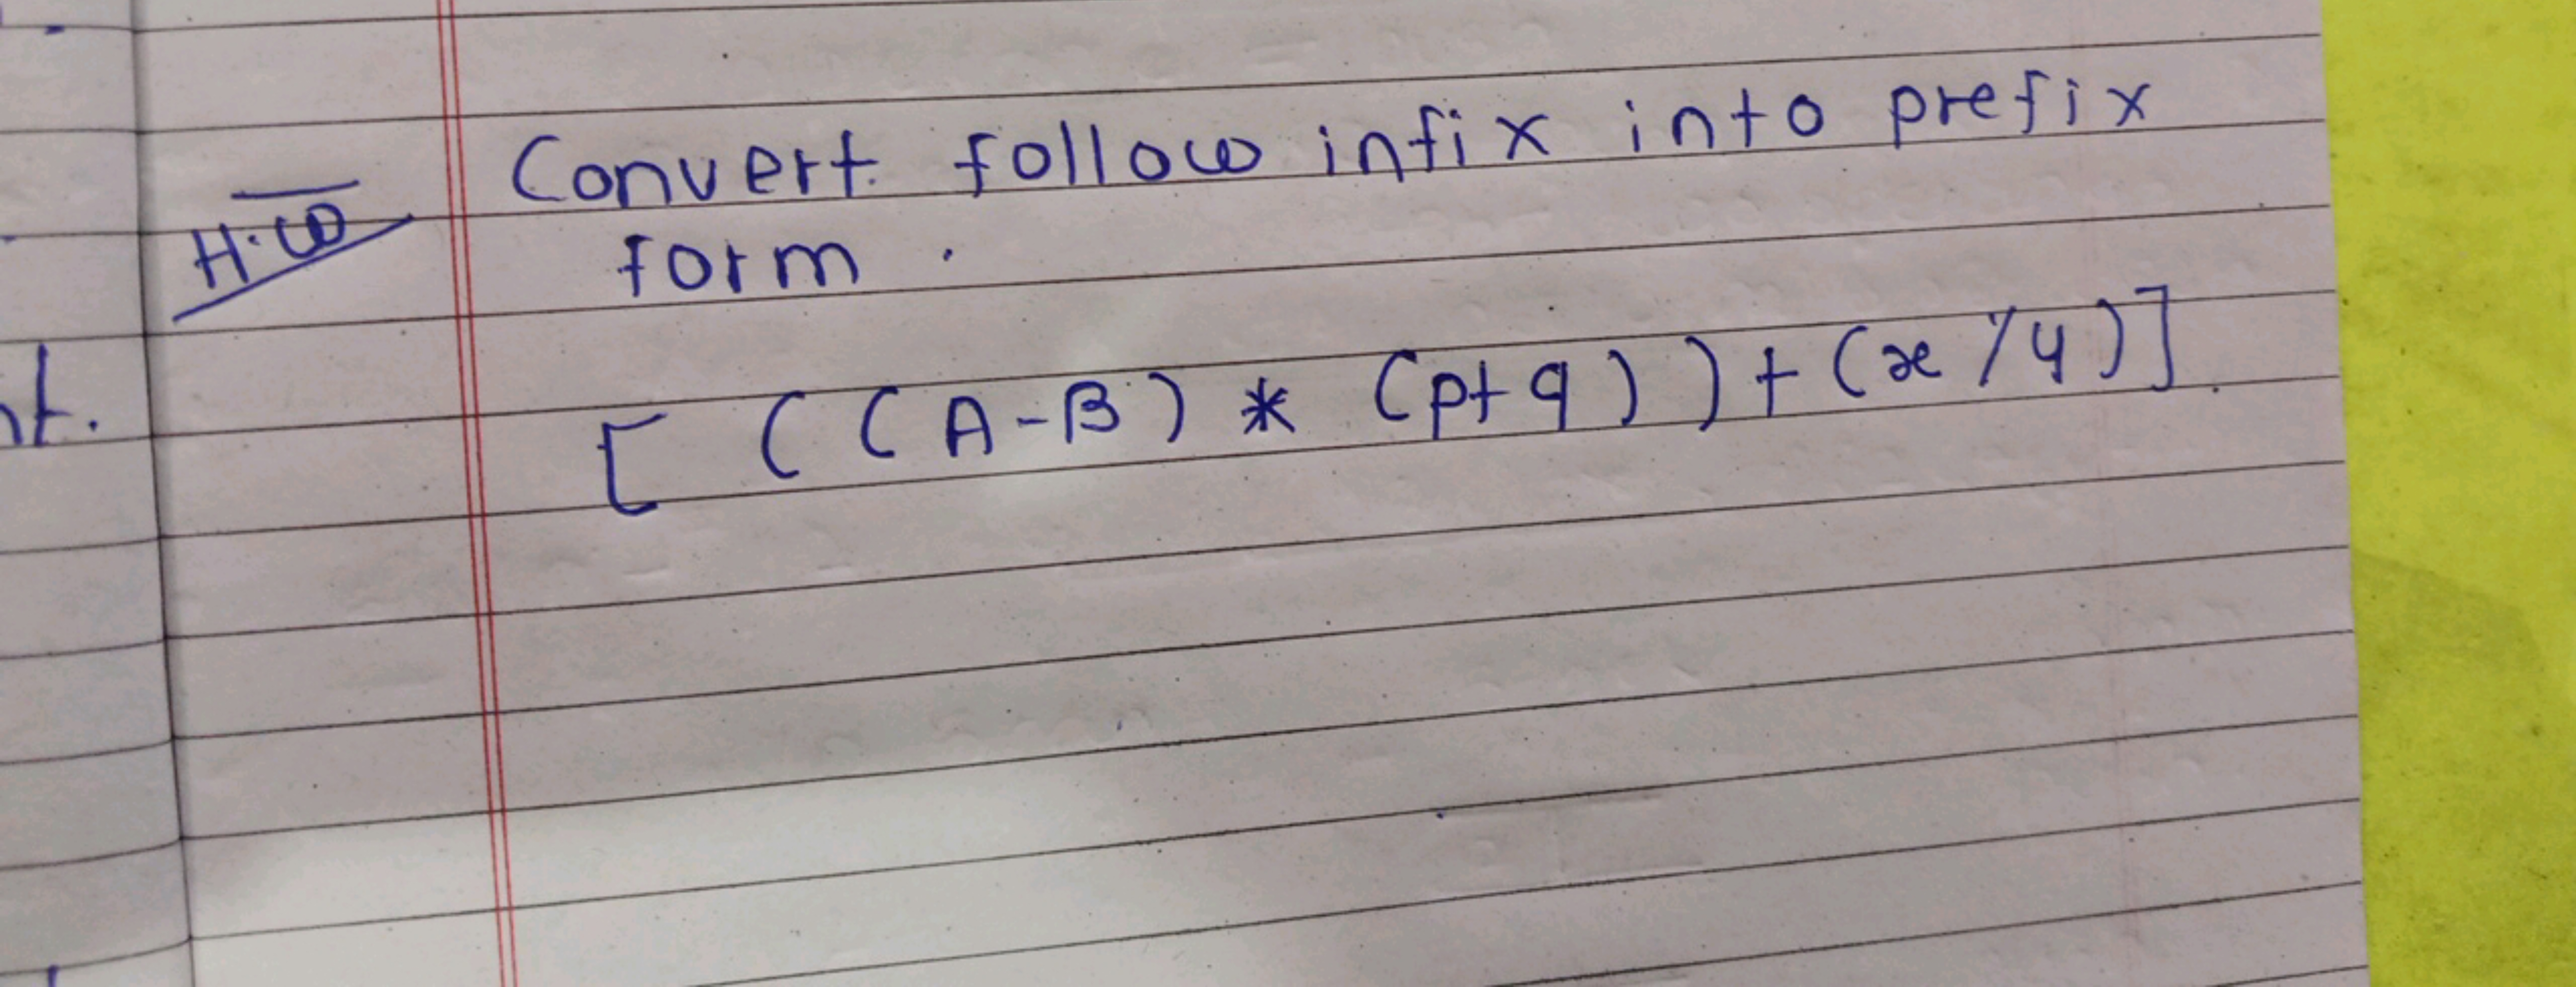 Convert follow infix into prefix
H.W
form.
[ ( ( A - B ) * ( p + q ) ) + ( x / y ) ].